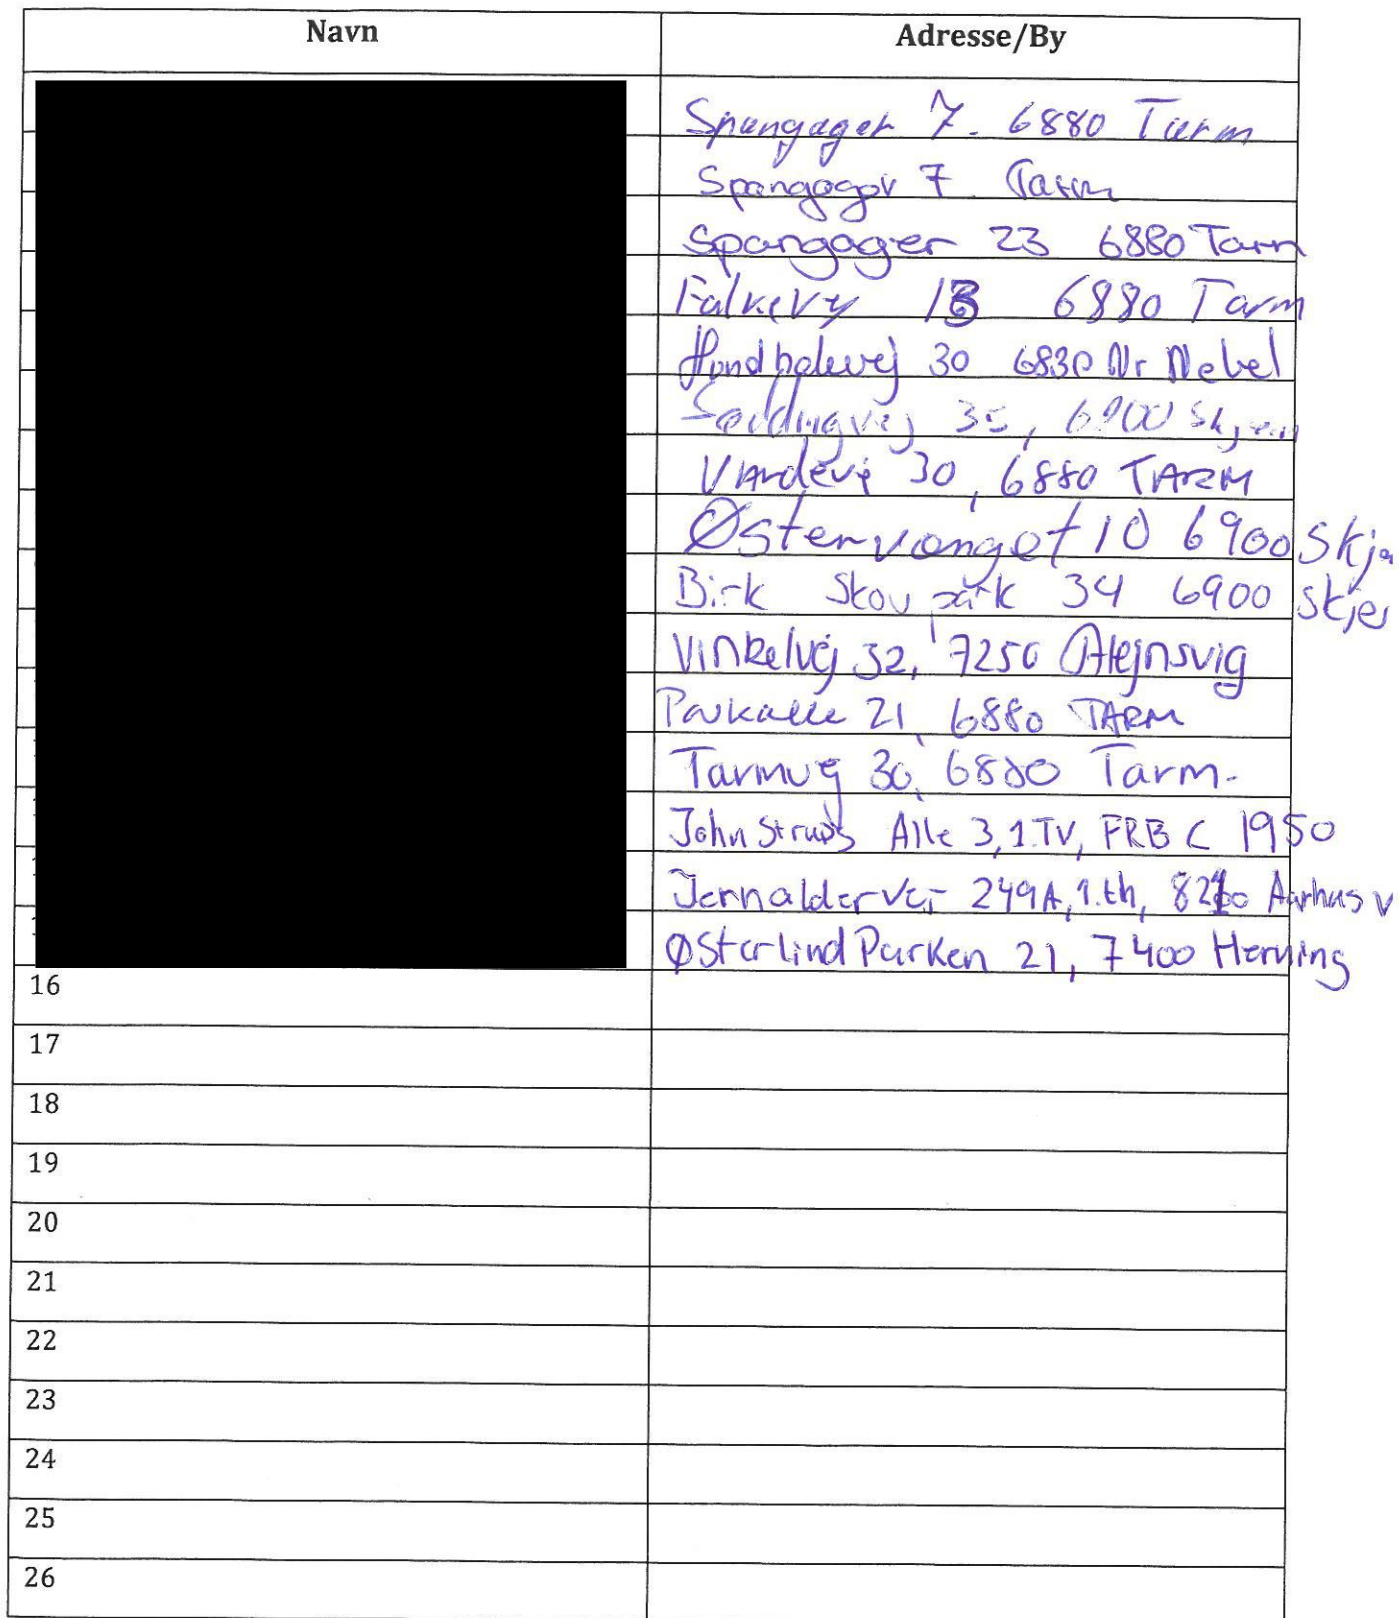 Navn Adresse/By
Spangager 7. 6880 Tarm
Spangager 7 Tarm
Spangager 23 6880 Tarm
Falkevej 6880 Tarm
30 6830 Nr Nebel
Sæddingvej 35, 6900 Skjern
Vardevej 30, 6880 TARM
Østervænget 10 6900 Skje
Birk Skovpark 34 6900 Skje
Vinkelvej 32, 7250 Hejnsvig
Parkalle 21, 6880 TARM
Tarmvej 30, 6880 Tarm.
John Alle 3, 1.TV, FRB C 1950
Jernaldervej 249A, 1.th, Aarhus V
ØsterlindParken 21, 7400 Herning
16
17
18
19
20
21
22
23
24
25
26